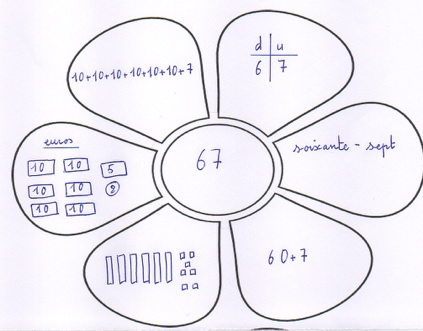 10+10+10+10+10+10+7
d u
6 7
euros
10 10 5
10 10 2
10 10
67
soixante - sept
60+7